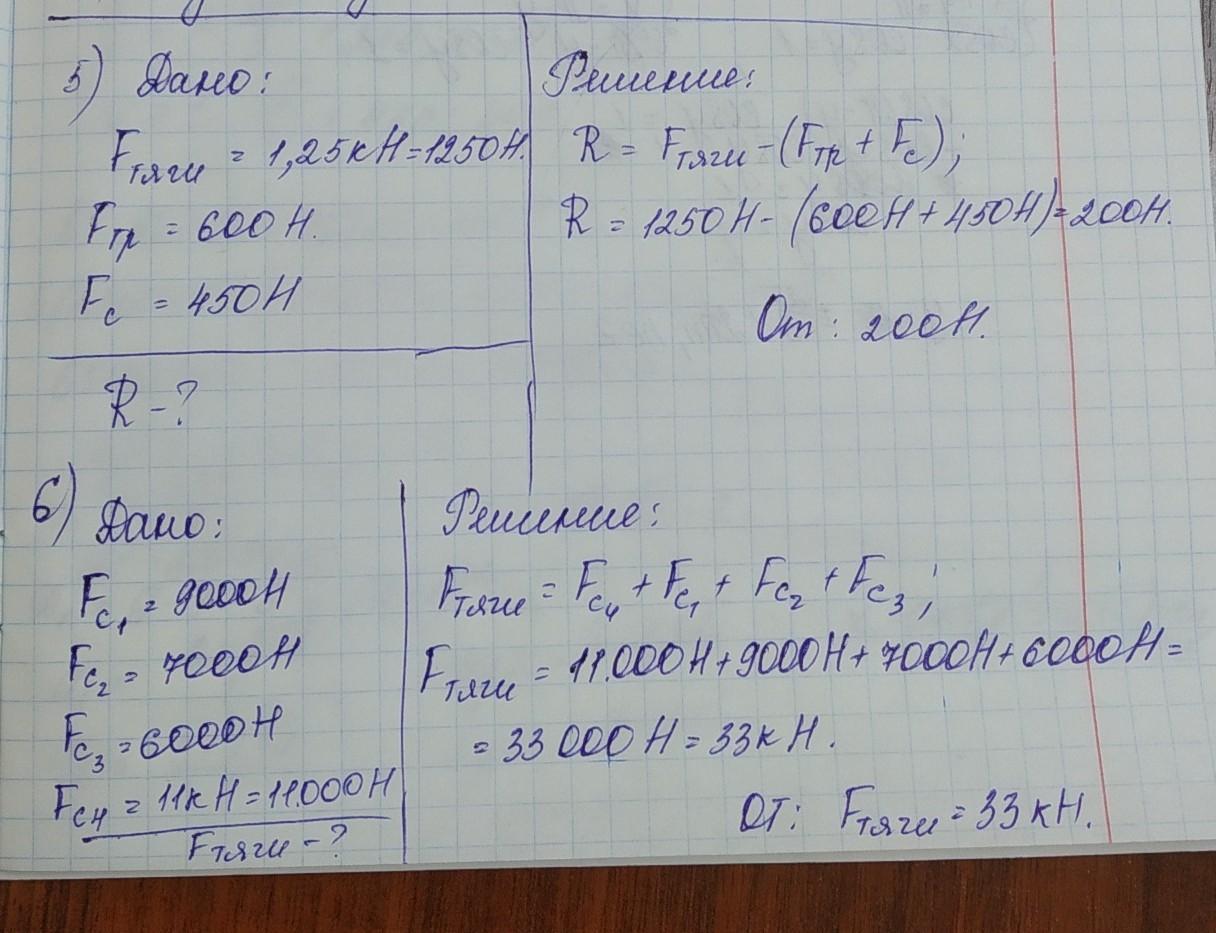 5) Дано:
Fтяги = 1,25кН=1250Н.
Fтр = 600Н.
Fс = 450Н
R-?
Решение:
R = Fтяги-(Fтр + Fс);
R = 1250Н-(600Н+450Н)=200Н.
От: 200Н.
6) Дано:
Fс₁ = 9000Н
Fс₂ = 7000Н
Fс₃ =6000Н
Fс4 = 11кН=11.000Н
Fтяги-?
Решение:
Fтяги = Fс₄ + Fс₁ + Fс₂ + Fс₃;
Fтяги = 11.000Н+9000Н+7000Н+6000Н=
= 33 000Н=33кН.
ОТ: Fтяги=33кН.